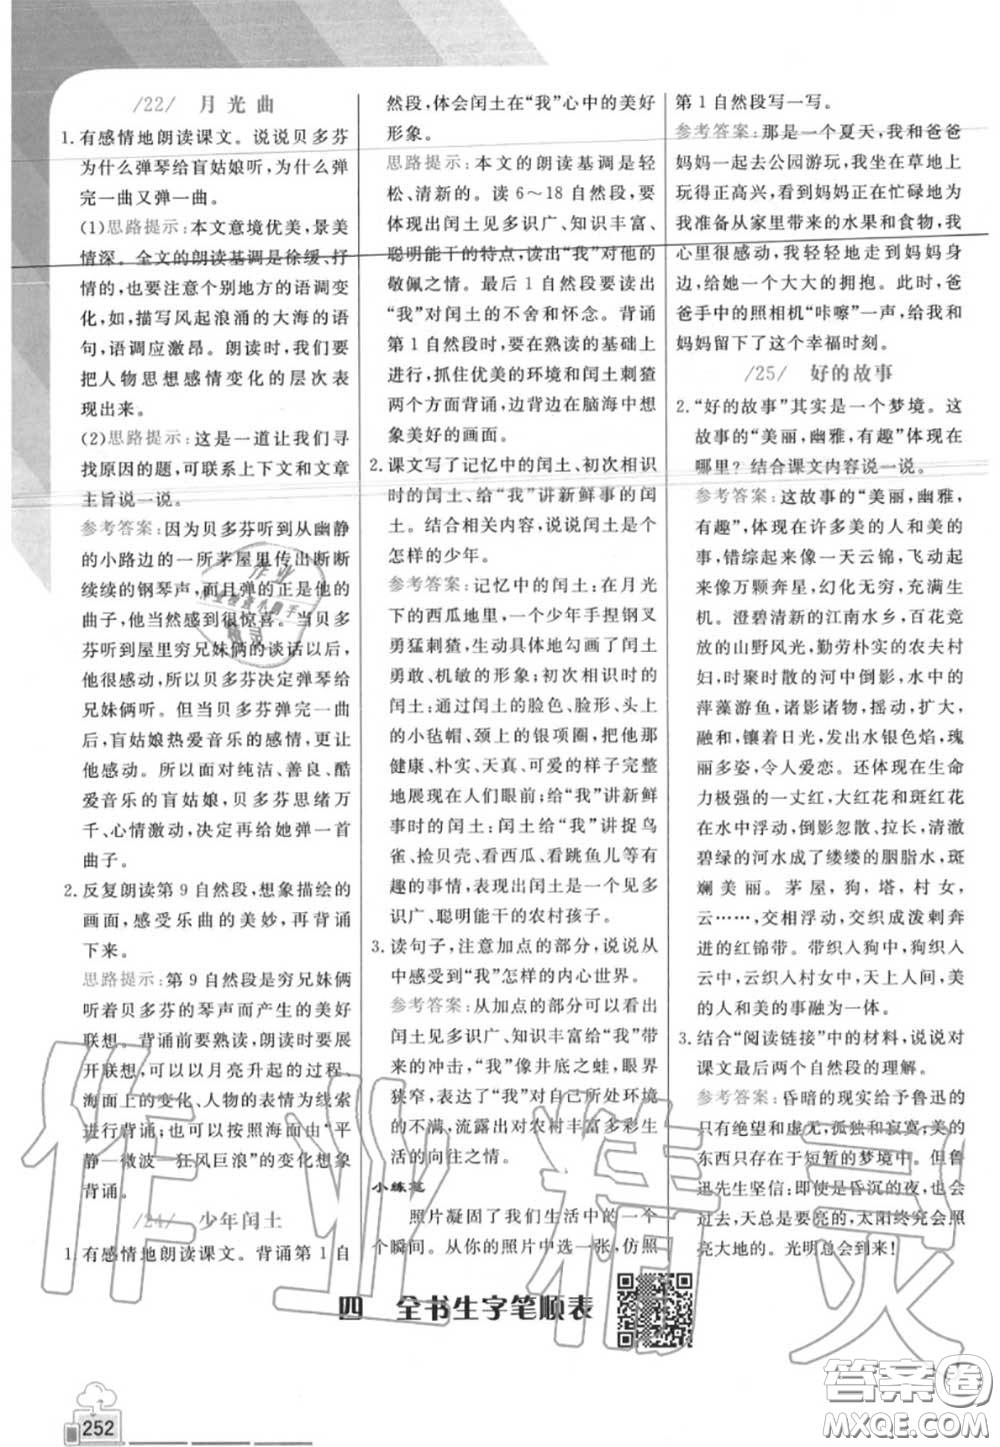 /22/ 月光曲
1. 有感情地朗读课文。说说贝多芬
为什么弹琴给盲姑娘听,为什么弹
完一曲又弹一曲。
(1)思路提示:本文意境优美,景美
情深。全文的朗读基调是徐缓、抒
情的,也要注意个别地方的语调变
化,如,描写风起浪涌的大海的语
句,语调应激昂。朗读时,我们要
把人物思想感情变化的层次表
现出来。
(2)思路提示:这是一道让我们寻
找原因的题,可联系上下文和文章
主旨说一说。
参考答案:因为贝多芬听到从幽静
的小路边的一所茅屋里传出断断
续续的钢琴声,而且弹的正是他的
曲子,他当然感到很惊喜。当贝多
芬听到屋里穷兄妹俩的谈话以后,
同情使贝多芬决定弹琴给
兄妹俩听。但当贝多芬弹完一曲
后,盲姑娘热爱音乐的感情,更让
他感动。所以面对纯洁、善良、酷
爱音乐的盲姑娘,贝多芬思绪万
千、心情激动,决定再给她弹一首
曲子。
2. 反复朗读第9自然段,想象描绘的
画面,感受乐曲的美妙,再背诵
下来。
思路提示:第9自然段是穷兄妹俩
听着贝多芬的琴声而产生的美好
联想。背诵前要熟读,背诵时要展
开联想,可以以月亮升起的过程、
海面上的变化、人物的表情为线索
进行背诵;也可以按照海面由“平
静—微波—狂风巨浪”的变化想象
背诵。
/24/ 少年闰土
1. 有感情地朗读课文。背诵第1自
然段,体会闰土在“我”心中的美好
形象。
思路提示:本文的朗读基调是轻
松、清新的。读6~18自然段,要
体现出闰土见多识广、知识丰富、
聪明能干的特点,读出“我”对他的
敬佩之情。最后1自然段要读出
“我”对闰土的不舍和怀念。背诵
第1自然段时,要在熟读的基础上
进行,抓住优美的环境和闰土刺猹
两个方面背诵,边背边在脑海中想
象美好的画面。
2. 课文写了记忆中的闰土、初次相识
时的闰土、给“我”讲新鲜事的闰
土。结合相关内容,说说闰土是个
怎样的少年。
参考答案:记忆中的闰土:在月光
下的西瓜地里,一个少年手捏钢叉
勇猛刺猹,生动地勾画了闰土
勇敢、机敏的形象;初次相识时的
闰土:通过闰土的脸色、脸形、头上
的小毡帽、颈上的银项圈,把他那
健康、朴实、天真、可爱的样子完整
地展现在人们眼前;给“我”讲新鲜
事时的闰土:闰土给“我”讲捉鸟
雀、捡贝壳、看西瓜、看跳鱼儿等有
趣的事情,表现出闰土是一个见多
识广、聪明能干的农村孩子。
3. 读句子,注意加点的部分,说说从
中感受到“我”怎样的内心世界。
参考答案:从加点的部分可以看出
闰土见多识广、知识丰富给“我”带
来的冲击,“我”像井底之蛙,眼界
狭窄,表达了“我”对自己所处环境
的不满,流露出对农村丰富多彩生
活的向往之情。
小练笔
照片凝固了我们生活中的一个
个瞬间。从你的照片中选一张,仿照
第1自然段写一写。
参考答案:那是一个夏天,我和爸爸
妈妈一起去公园游玩,我坐在草地上
玩得正高兴,看到妈妈正在忙碌地为
我准备从家里带来的水果和食物,我
心里很感动,我轻轻地走到妈妈身
边,给她一个大大的拥抱。此时,爸
爸手中的照相机“咔嚓”一声,给我和
和妈妈留下了这个幸福时刻。
/25/ 好的故事
2. “好的故事”其实是一个梦境。这
故事的“美丽,幽雅,有趣”体现在
哪里?结合课文内容说一说。
参考答案:这故事的“美丽,幽雅,
有趣”,体现在许多美的人和美的
事,错综起来像一天云锦,飞动起来
像万颗奔星,幻化无穷,充满生
机。澄碧清新的江南水乡,百花竞
放的山野风光,勤劳朴实的农夫村
妇,时聚时散的河中倒影,水中的
萍藻游鱼,诸影诸物,摇动,扩大,
融和,镶着日光,发出水银色焰,瑰
丽多姿,令人爱恋。还体现在生命
力极强的一丈红,大红花和斑红花
在水中浮动,倒影忽散,拉长,清澈
碧绿的河水成了缕缕的胭脂水,斑
斓美丽。茅屋,狗,塔,村女,
云……,交相浮动,交织成泼剌奔
进的红锦带。带织人狗中,狗织人
云中,云织人村女中,天上人间,美
的人和美的事融为一体。
3. 结合“阅读链接”中的材料,说说对
课文最后两个自然段的理解。
参考答案:昏暗的现实给予鲁迅的
只有绝望和虚无,孤独和寂寞;美的
东西只存在于短暂的梦境中。但鲁
迅先生坚信:即使是昏沉的夜,也会
过去,天总是要亮的,太阳终究会照
亮大地的。光明总会到来!
四 全书生字笔顺表
252
作业精灵
答案圈
MXQE.COM